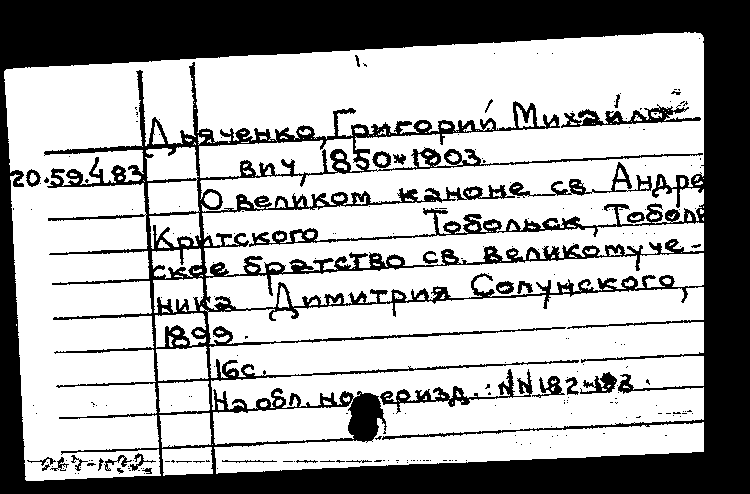 1.
Дьяченко, Григорий Михайло-
20.59.4.83 вич, 1850-1903.
О великом каноне св. Андре
Критского Тобольск, Тоболь
ское братство св. великомуче-
ника Димитрия Солунского,
1899.
16с.
На обл. номер изд.: NN 182-193.